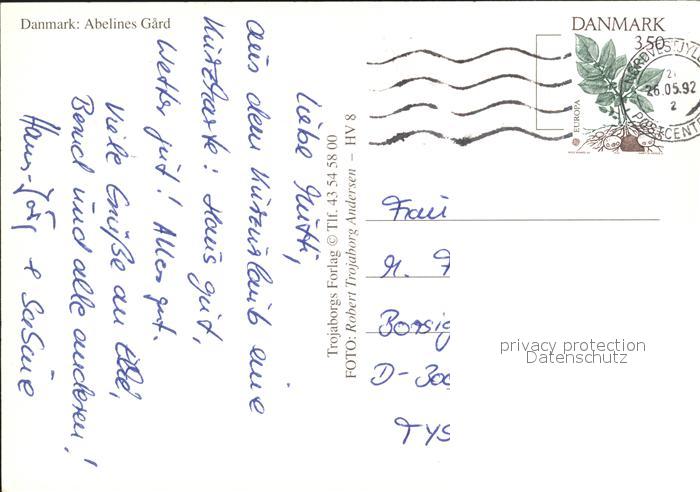 Danmark: Abelines Gård
Liebe Mutti,
aus dem Kurzurlaub eine
Kurzkarte: Haus gut,
Wetter gut! Alles gut.
Viele Grüße an
Bernd und alle anderen!
Hans-Jörg + Sabine
Trojaborgs Forlag © Tlf. 43 54 58 00
FOTO: Robert Trojaborg Andersen – HV 8
DANMARK
3.50
EUROPA
26.05.92
2
POSTCENTER
Frau
M.
Borsig
D-300
TYS
privacy protection
Datenschutz